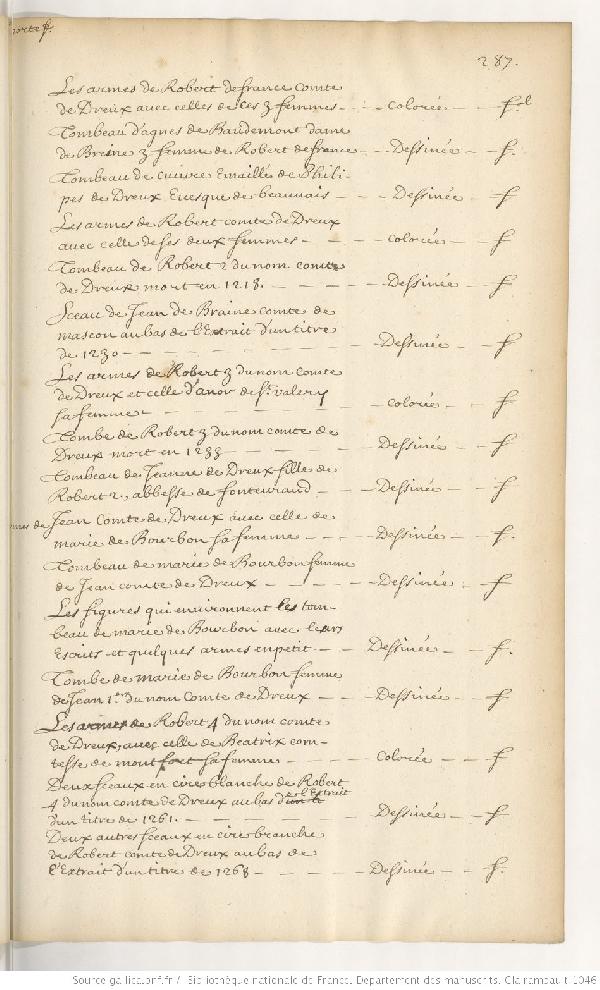 287.
Les armes de Robert de france comte
de Dreux avec celles de ces 3 femmes - - colorée - - f.
Tombeau d'agnes de Baudemont dame
de Breine 3 femme de Robert de france - - Dessinée - - f.
Tombeau de cuivre Emaillé de Phili-
pes de Dreux Evesque de beauvais - - Dessinée - f
Les armes de Robert comte de Dreux
avec celle de ses deux femmes - - - colorée - - f
Tombeau de Robert 2 du nom comte
de Dreux mort en 1218. - - - - Dessinée - - f
Sceau de Jean de Braine comte de
mascon au bas de l'Extrait d'un titre
de 1230 - - - - Dessinée - - f
Les armes de Robert 3 du nom comte
de Dreux et celle d'anor de st. valery
sa femme - - - - colorée - - f
Tombe de Robert 3 du nom comte de
Dreux mort en 1233 - - - - Dessinée - - f
Tombeau de Jeanne de Dreux fille de
Robert 2, abbesse de fonteuraud - - - Dessinée - - f
mes de Jean Comte de Dreux avec celle de
marie de Bourbon sa femme - - - Dessinée - - f.
Tombeau de marie de Bourbon femme
de Jean comte de Dreux - - - - Dessinée - f
Les figures qui environnent les tom-
beau de marie de Bourbon avec leurs
Escrits et quelques armes en petit - - Dessinée - - f.
Tombe de marie de Bourbon femme
de Jean 1.er du nom Comte de Dreux - - Dessinée - - f
Les armes de Robert 4 du nom comte
de Dreux, avec celle de Beatrix com-
tesse de mont fort sa femme - - - colorée - - f
Deux sceaux en cire blanche de Robert
4 du nom comte de Dreux au bas de l'Extrait
d'un titre de 1261. - - - - Dessinée - - f
Deux autres sceaux en cire branche
de Robert comte de Dreux au bas de
l'Extrait d'un titre de 1268 - - - - Dessinée - - f.
Source gallica.bnf.fr / Bibliothèque nationale de France. Département des manuscrits. Clairambault 1046